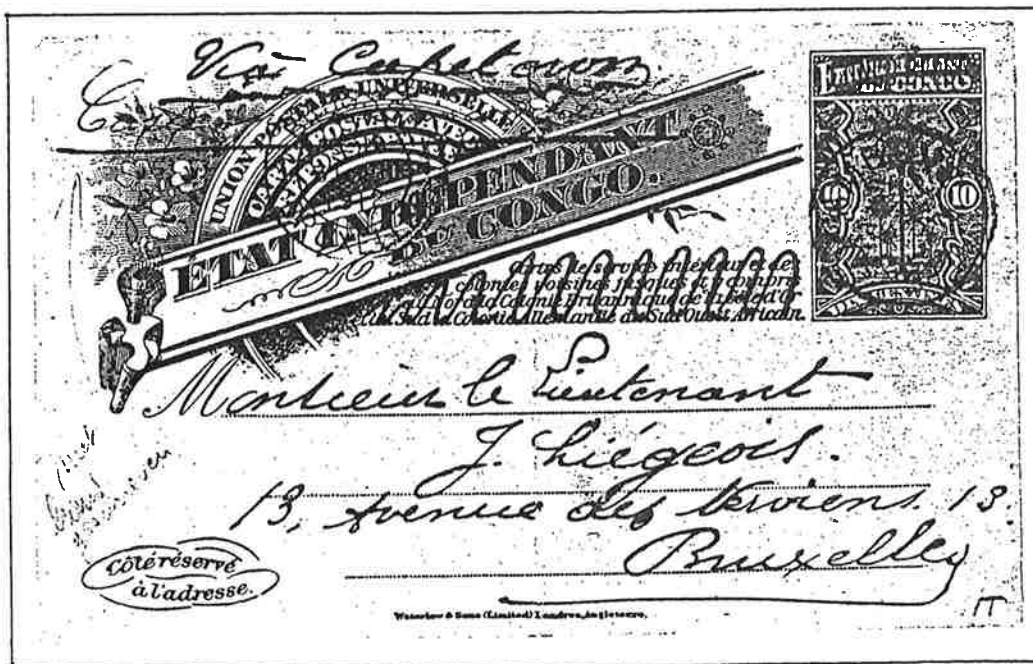 Via
UNION POSTALE UNIVERSELLE
CARTE POSTALE AVEC
RÉPONSE PAYÉE
ÉTAT INDÉPENDANT
DU CONGO.
ÉTAT INDÉPENDANT
DU CONGO
10 10
DIX CENTIMES
Cartes de service intérieur et des
colonies voisines jusques et y compris
au Nord la Colonie Britannique de la Côte d'Or
et au Sud la Colonie Allemande du Sud Ouest Africain.
Monsieur le Lieutenant
J. Liégeois.
13, Avenue des 13.
Bruxelles
Côté réservé
à l'adresse.
Waterlow & Sons (Limited) Londres, Angleterre.